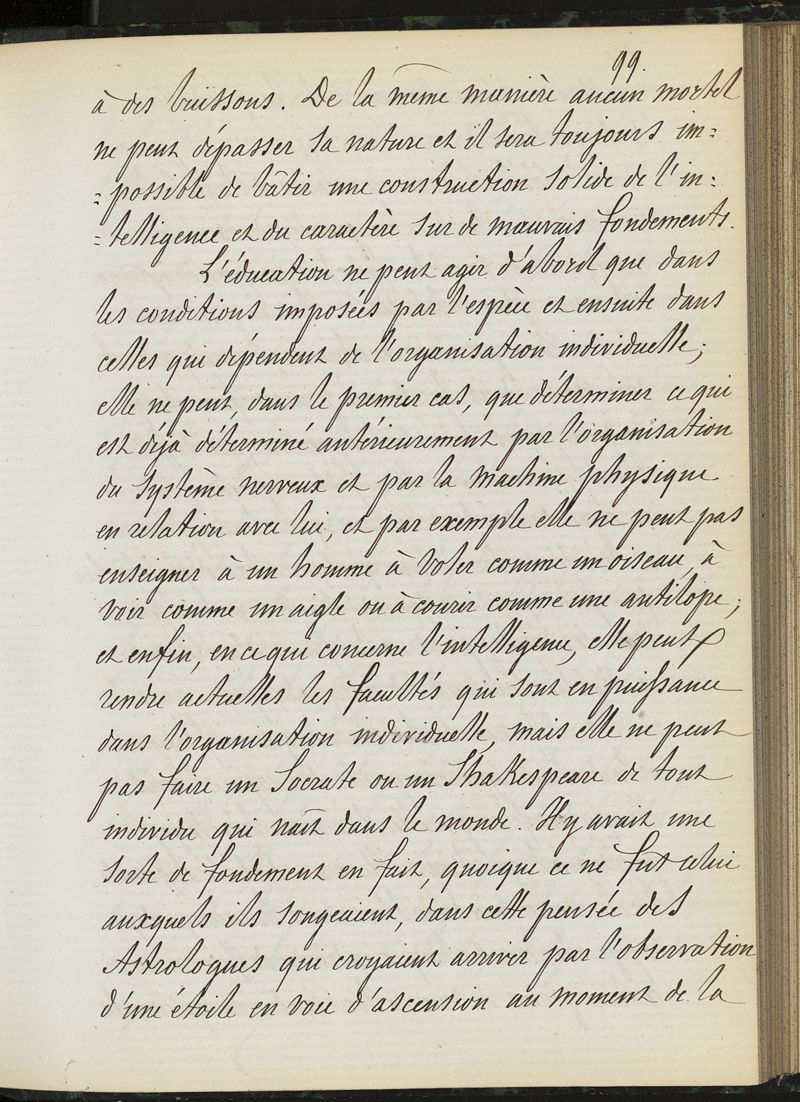 99.
à des buissons. De la même manière aucun mortel
ne peut dépasser sa nature et il sera toujours im=
=possible de bâtir une construction solide de l'in=
=telligence et du caractère sur de mauvais fondements.
L'éducation ne peut agir d'abord que dans
les conditions imposées par l'espèce et ensuite dans
celles qui dépendent de l'organisation individuelle;
elle ne peut, dans le premier cas, que déterminer ce qui
est déjà déterminé antérieurement par l'organisation
du système nerveux et par la machine physique
en relation avec lui, et par exemple elle ne peut pas
enseigner à un homme à voler comme un oiseau, à
voir comme un aigle ou à courir comme une antilope;
et enfin, en ce qui concerne l'intelligence, elle peut
rendre actuelles les facultés qui sont en puissance
dans l'organisation individuelle, mais elle ne peut
pas faire un Socrate ou un Shakespeare de tout
individu qui naît dans le monde. Il y avait une
sorte de fondement en fait, quoique ce ne fut celui
auxquels ils songeaient, dans cette pensée des
Astrologues qui croyaient arriver par l'observation
d'une étoile en voie d'ascension au moment de la